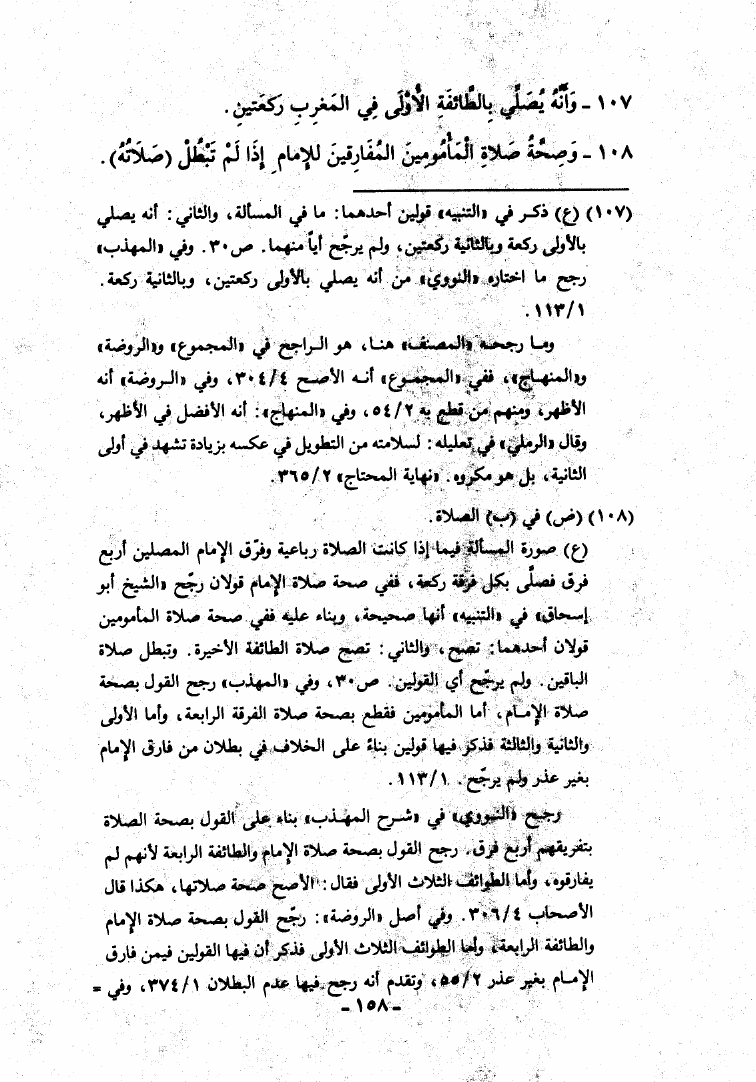 ١٠٧ - وَأَنَّهُ يُصَلِّي بِالطَّائفَةِ الْأُوْلَى فِي المَغربِ رَكعَتينِ.
١٠٨ - وَصِحَّةُ صَلاةِ الْمَأمُومِينَ المُفَارِقينَ للإمامِ إِذَا لَمْ تَبْطُلْ (صَلَاتُهُ).
(١٠٧) (ع) ذكر في «التنبيه» قولين أحدهما: ما في المسألة، والثاني: أنه يصلي
بالأولى ركعة وبالثانية ركعتين، ولم يرجّح أياً منهما. ص٣٠. وفي «المهذب»
رجح ما اختاره «النووي» من أنه يصلي بالأولى ركعتين، وبالثانية ركعة.
١١٣/١.
وما رجحه «المصنف» هنا، هو الراجح في «المجموع» و«الروضة»
و«المنهاج»، ففي «المجموع» أنه الأصح ٣٠٤/٤، وفي «الروضة» أنه
الأظهر، ومنهم من قطع به ٥٤/٢، وفي «المنهاج»: أنه الأفضل في الأظهر،
وقال «الرملي» في تعليله: لسلامته من التطويل في عكسه بزيادة تشهد في أولى
الثانية، بل هو مكروه. «نهاية المحتاج» ٣٦٥/٢.
(١٠٨) (ض) في (ب) الصلاة.
(ع) صورة المسألة فيما إذا كانت الصلاة رباعية وفرّق الإمام المصلين أربع
فرق فصلّى بكل فرقة ركعة، ففي صحة صلاة الإمام قولان رجّح «الشيخ أبو
إسحاق» في «التنبيه» أنها صحيحة، وبناء عليه ففي صحة صلاة المأمومين
قولان أحدهما: تصح، والثاني: تصح صلاة الطائفة الأخيرة. وتبطل صلاة
الباقين. ولم يرجّح أي القولين. ص٣٠، وفي «المهذب» رجح القول بصحة
صلاة الإمام، أما المأمومين فقطع بصحة صلاة الفرقة الرابعة، وأما الأولى
والثانية والثالثة فذكر فيها قولين بناءً على الخلاف في بطلان من فارق الإمام
بغير عذر ولم يرجّح. ١١٣/١.
رجح «النووي» في «شرح المهذب» بناء على القول بصحة الصلاة
بتفريقهم أربع فرق. رجح القول بصحة صلاة الإمام والطائفة الرابعة لأنهم لم
يفارقوه، وأما الطوائف الثلاث الأولى فقال: الأصح صحة صلاتها، هكذا قال
الأصحاب ٣٠٦/٤. وفي أصل «الروضة»: رجّح القول بصحة صلاة الإمام
والطائفة الرابعة، وأما الطوائف الثلاث الأولى فذكر أن فيها القولين فيمن فارق
الإمام بغير عذر ٥٥/٢، وتقدم أنه رجح فيها عدم البطلان ٣٧٤/١، وفي =
- ١٥٨ -